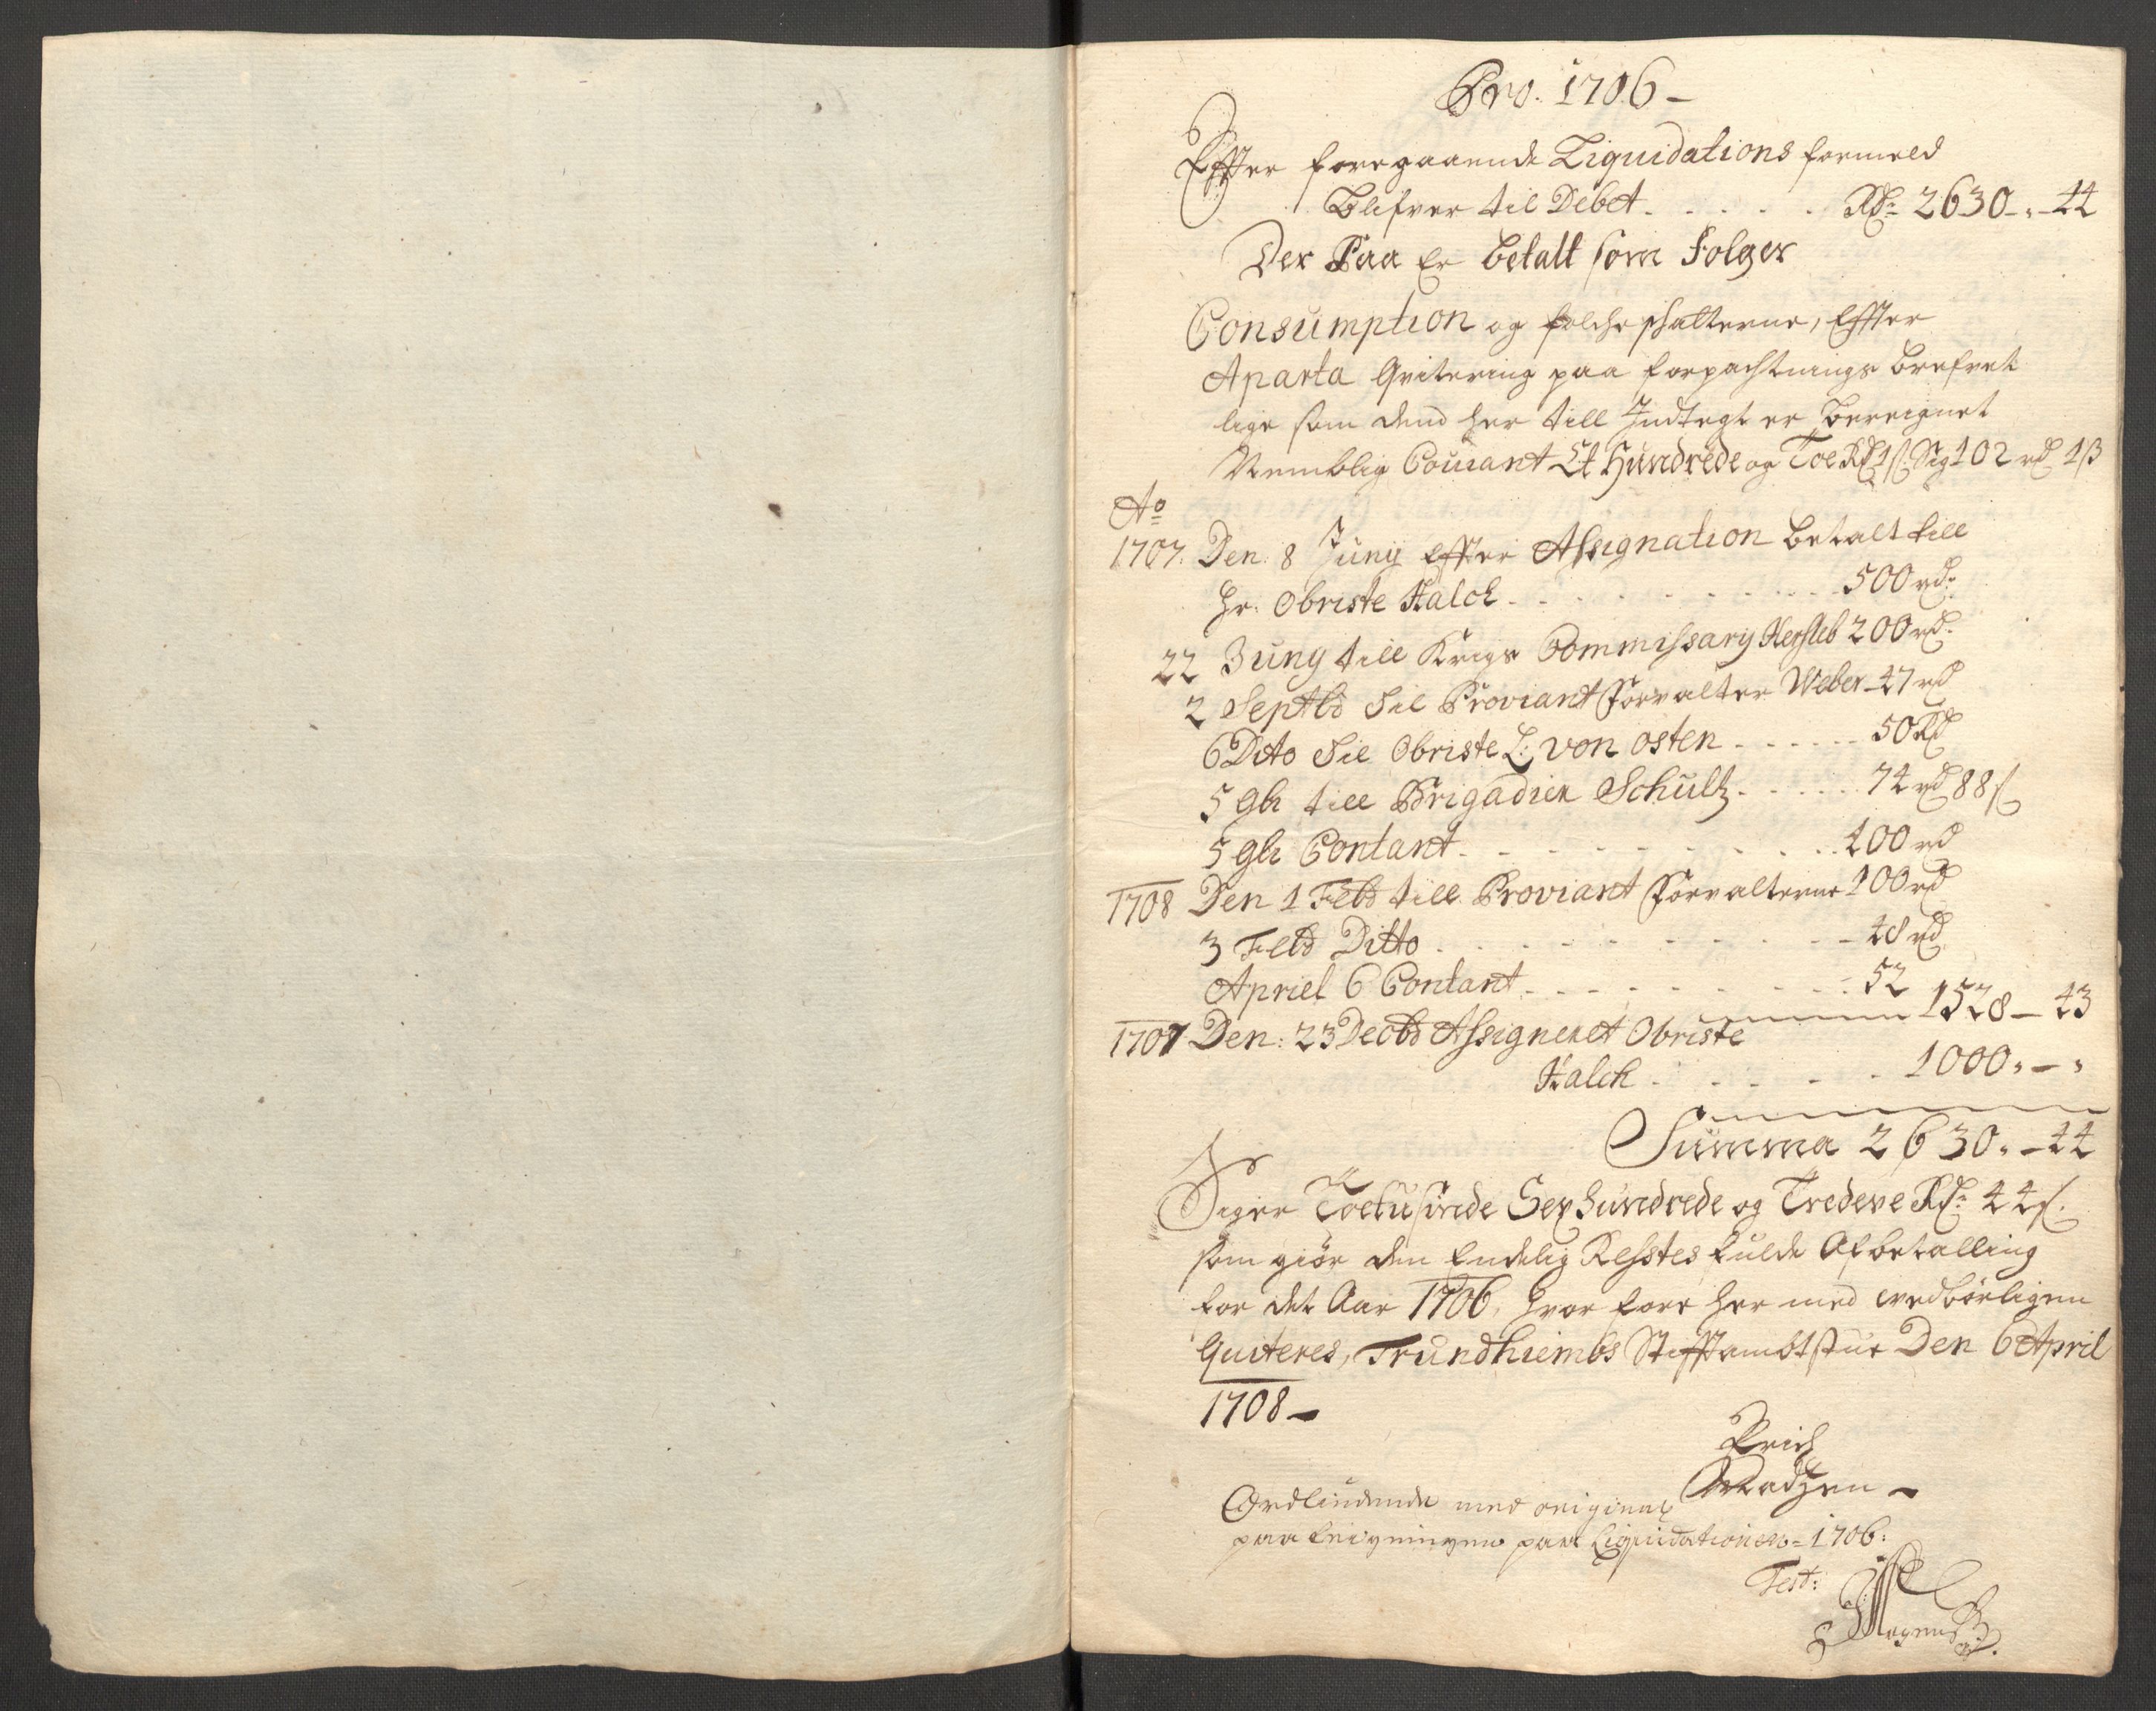 Pro. 1706 -
Effter foregaaende Liquidations formeld
Blifver til Debet . . . . . Rd: 2630 - " - 44
Der Paa Er betalt som Folger
Consumption og folche schatterne, Effter
Aparta Qvitering paa forpachtnings brefvet
lige som dend her till Indtegt er bereignet
Nemblig Couiant Et Hundrede og Toe Rd 1 s. Sig 102 rd 1 ß
Ao
1707. Den. 8 Juny Effter Assignation betalt till
Hr: Obriste Kalck . . . . . . . . 500 rd:
22 Juny till Krigs Commissary Hersleb 200 rd.
2 Septbr Til Proviant Forvalter Weber - 47 rd
6 Dito Til Obriste L: von osten . . . . . 50 Rd
5 9br till Brigadier Schultz . . . . . 74 rd 88 s
5 9br Contant . . . . . . . . . 400 rd
1708 Den 1 Febr till Proviant Forvalterne 100 rd
3 Febr Ditto . . . . . . . . . . 48 rd
Apriel 6 Contant . . . . . . . . 52
1528 - 43
1707 Den: 23 Decbr Assigneret Obriste
Kalck . . . . . 1000 " - "
Summa 2630 " - 44
Siger Toetusinde Sex Hundrede og Tredeve Rd: 44 s.
som giör den Endelig Restes fulde Afbetalling
for det Aar 1706, hvor fore her med vedbörligen
Quiteres, Trundhiembs Stifftambtstue Den 6 April
1708 -
Erich
Madzen -
Ordlindende med original
paa teigningen paa Liquidationen = 1706:
Test: